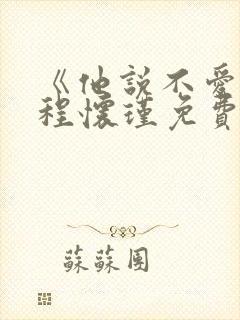 《他說不愛
程懷瑾免費
蘇蘇團